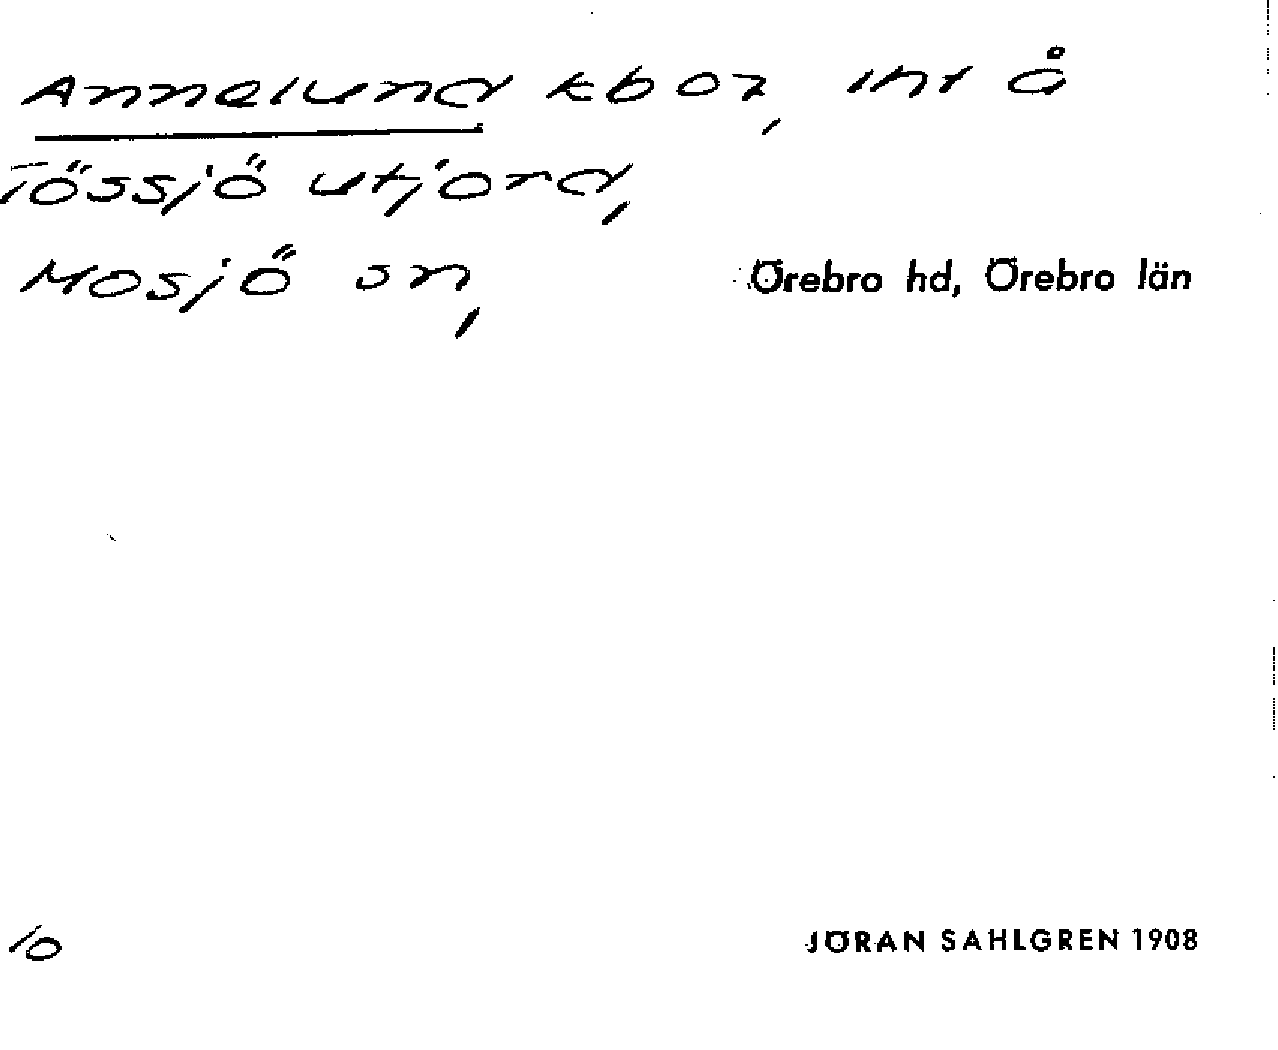 Annelund kboz, int å
Tössjö utjord,
Mosjö sn,
Örebro hd, Örebro län
10
JÖRAN SAHLGREN 1908